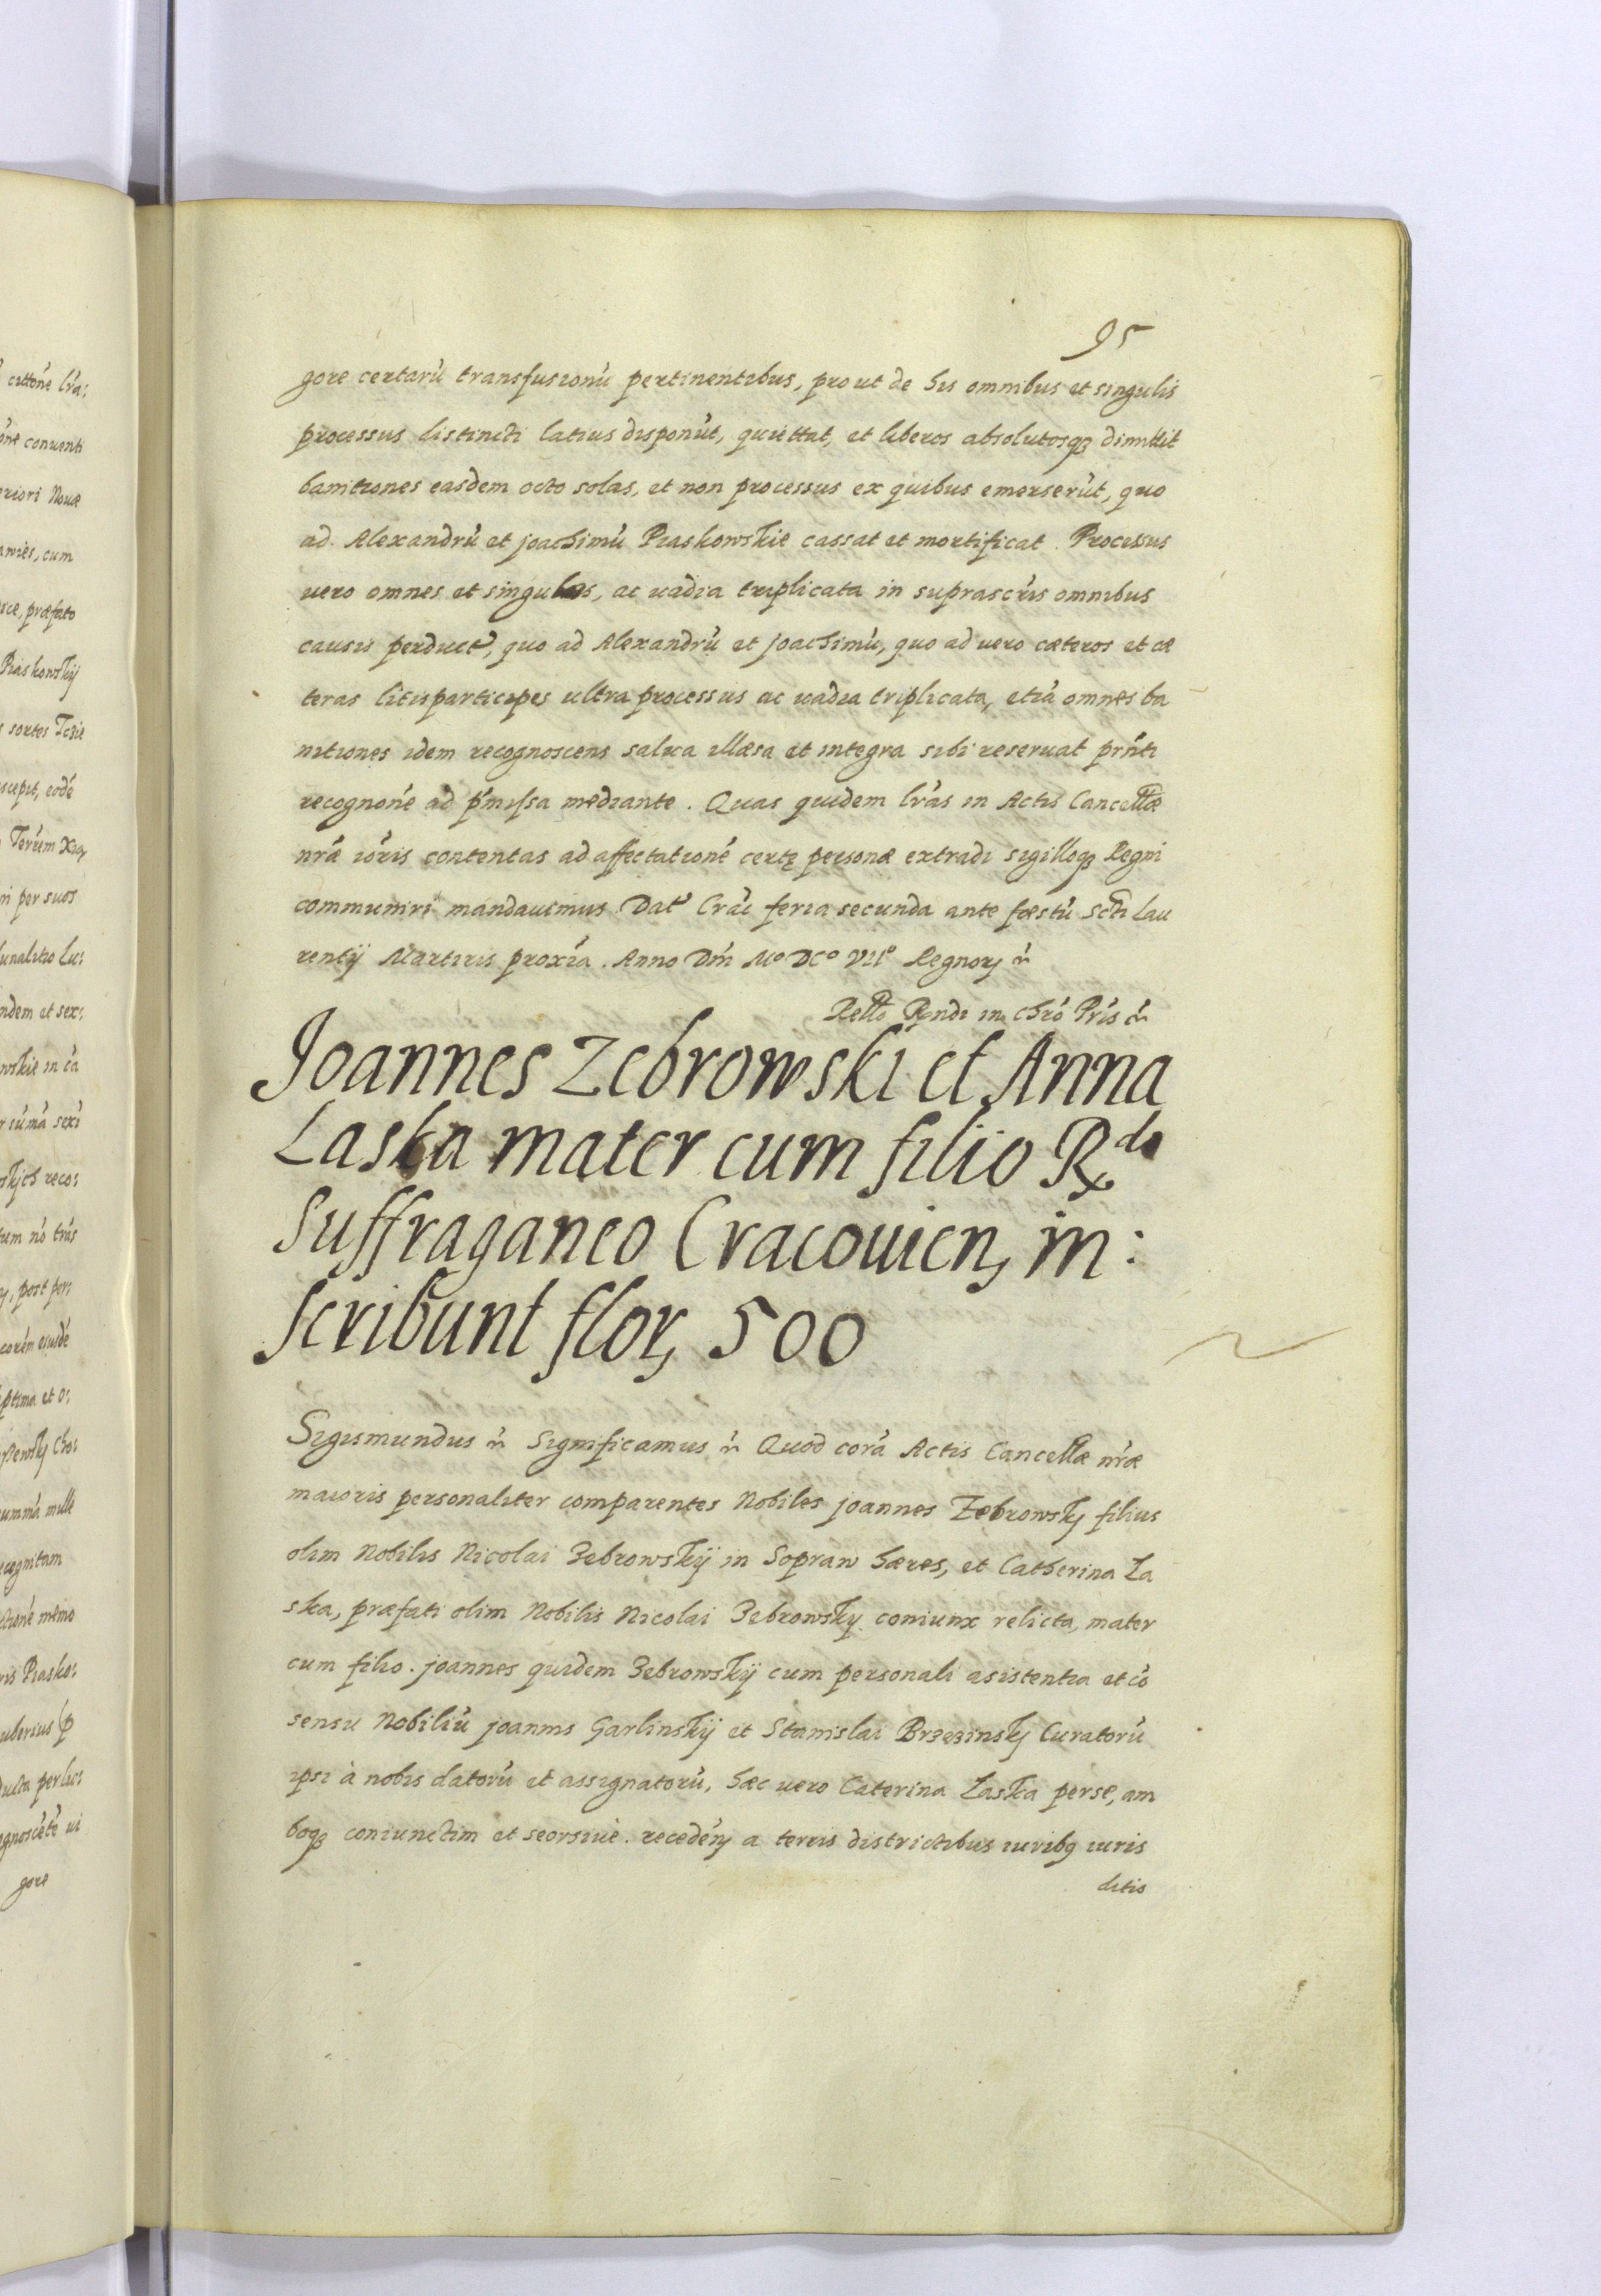 95
gore certarũ transfusionũ pertinentibus, prout de his omnibus et singulis
processus distincti latius disponũt, quiettat, et liberos absolutosq₃ dimittit
banitiones easdem octo solas, et non processus ex quibus emerserũt, quo
ad Alexandrũ et Joachimũ Piaskowskie cassat et mortificat. Processus
vero omnes et singulos, ac vadia triplicata in suprascr̃is omnibus
causis perduct, quo ad Alexandrũ et Joachimũ, quo ad vero cæteros et cæ
teras litis participes ultra processus ac vadia triplicata, etiã omnes ba
nitiones idem recognoscens salva illæsa et integra sibi reservat pr̃nti
recognonẽ ad p̃missa mediante. Quas quidem lr̃as in Actis Cancellæ
nr̃æ ioris contentas ad affectationẽ certę personæ extradi sigilloq₃ Regni
communiri mandavimus Dat Crac̃ feria secunda ante fæstũ Scti Lau
rentij Martiris proxĩa. Anno Dñi Mº DCº VIIº Regnorʒ ñ
Rellõ Rndi in Chrõ Pr̃is ñ
Joannes Zebrowski et Anna
Laska mater cum filio Rdo
Suffraganeo Cracouien, in:
scribunt flor, 500
Sigismundus ñ Significamus ñ Quod corã Actis Cancellæ nr̃æ
maioris personaliter comparentes Nobiles Joannes Zebrowskỹ filius
olim Nobilis Nicolai Zebrowskij in Sopraw hæres, et Catherina La
ska, præfati olim Nobilis Nicolai Zebrowsky coniunx relicta, mater
cum filio. Joannes quidem Zebrowskij cum personali asistentia et cõ
sensu Nobiliũ Joannis Garlinskij et Stanislai Brzezinskj Curatorũ
ipsi à nobis datorũ et assignatorũ, hæc vero Caterina Laska perse, am
boq₃ coniunctim et seorsivè recedẽñ a terris districtibus iuribq iuris
ditio
cum
præfato
Piaskowskij
per suos
ndem et sex:
reco:
gore